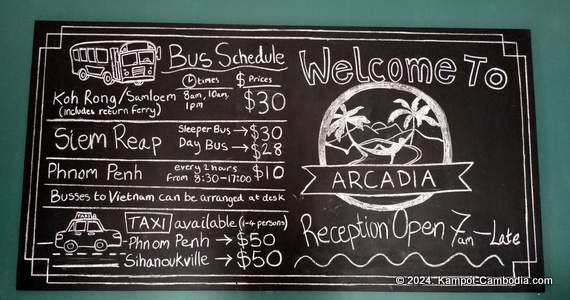 Bus Schedule
times $ Prices
Koh Rong/Samloem 8am, 10am, $30
(includes return ferry) 1pm
Siem Reap Sleeper Bus → $30
Day Bus → $28
Phnom Penh every 2 hours $10
from 8:30-17:00
Busses to Vietnam can be arranged at desk
TAXI
TAXI available (1-4 persons)
Phnom Penh → $50
Sihanoukville → $50
Welcome To
ARCADIA
Reception Open 7am - Late
© 2024, Kampot-Cambodia.com